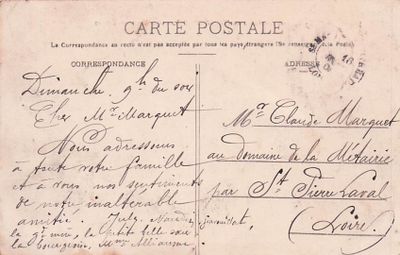 CARTE POSTALE
La Correspondance au recto n'est pas acceptée par tous les pays étrangers (Se renseigner à la Poste)
CORRESPONDANCE
ADRESSE
Dimanche, 9h du soir
Cher Mr Marguet
Nous adressons
à toute votre famille
et à vous nos sentiments
de notre inalterable
amitié
la petite belle sœur
la bourgeoise, Mme
Mr Claude Marguet
au domaine de la Métairie
par St Pierre Laval
(Loire)